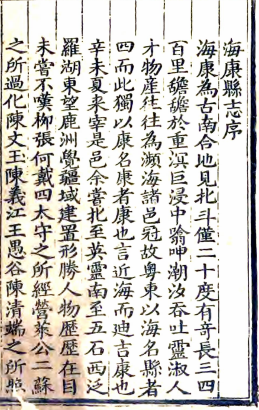 海康縣志序
海康為古南合地見北斗僅二十度有奇長三四
百里礧礧於重溟巨浸中翕呻潮汐吞吐靈淑人
才物產往往為瀕海諸邑冠故粤東以海名縣者
四而此獨以康名康者康也言近海而迪吉康也
辛未夏來宰是邑余嘗北至英靈南至五石西泛
羅湖東望鹿洲覺疆域建置形勝人物歷歷在目
未嘗不嘆柳張何戴四太守之所經營萊公二蘇
之所過化陳文玉陳義江王愚谷陳清端之所照